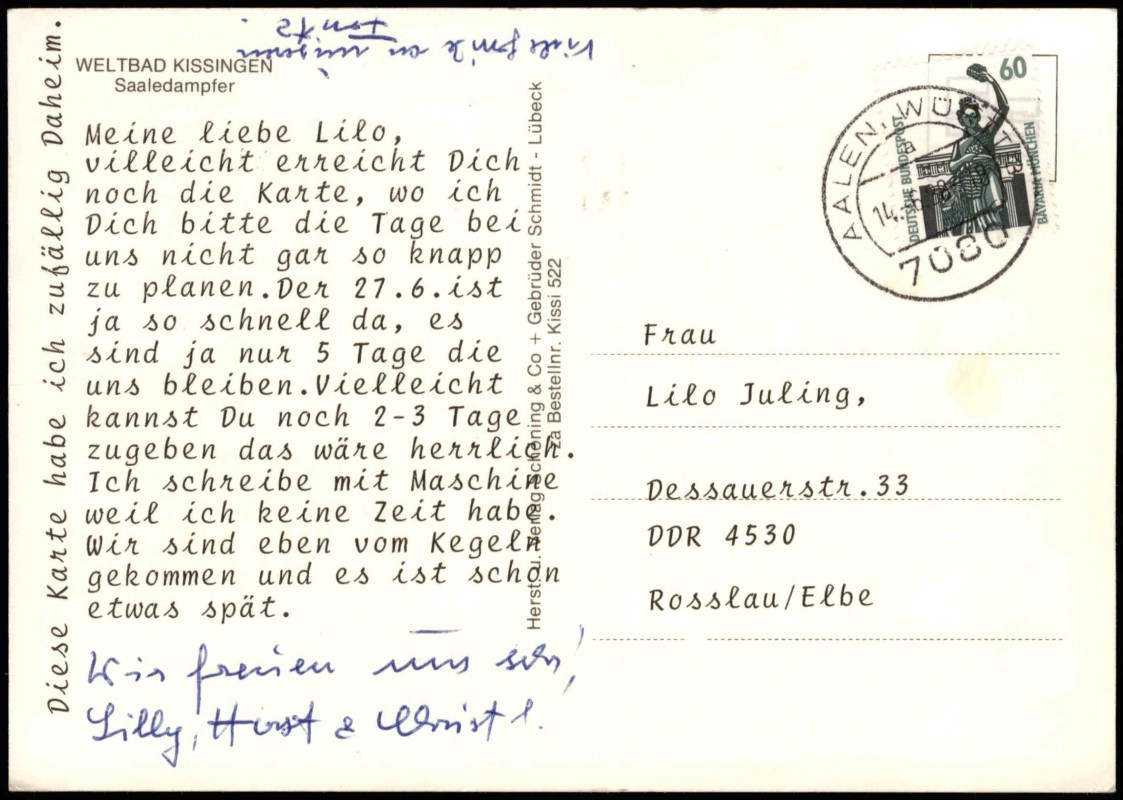 Viele Grüße an unseren
WELTBAD KISSINGEN
Saaledampfer
Meine liebe Lilo,
villeicht erreicht Dich
noch die Karte, wo ich
Dich bitte die Tage bei
uns nicht gar so knapp
zu planen.Der 27.6.ist
ja so schnell da, es
sind ja nur 5 Tage die
uns bleiben.Vielleicht
kannst Du noch 2-3 Tage
zugeben das wäre herrlich.
Ich schreibe mit Maschine
weil ich keine Zeit habe.
Wir sind eben vom Kegeln
gekommen und es ist schon
etwas spät.
Wir freuen uns sehr!
Lilly, Horst & Christl.
Diese Karte habe ich zufällig Daheim.
Herst. u. Verlag Schöning & Co + Gebrüder Schmidt - Lübeck
za Bestellnr. Kissi 522
60
DEUTSCHE BUNDESPOST
BAVARIA MÜNCHEN
AALEN, WÜRTT
a
14.-6.
7080
Frau
Lilo Juling,
Dessauerstr.33
DDR 4530
Rosslau/Elbe